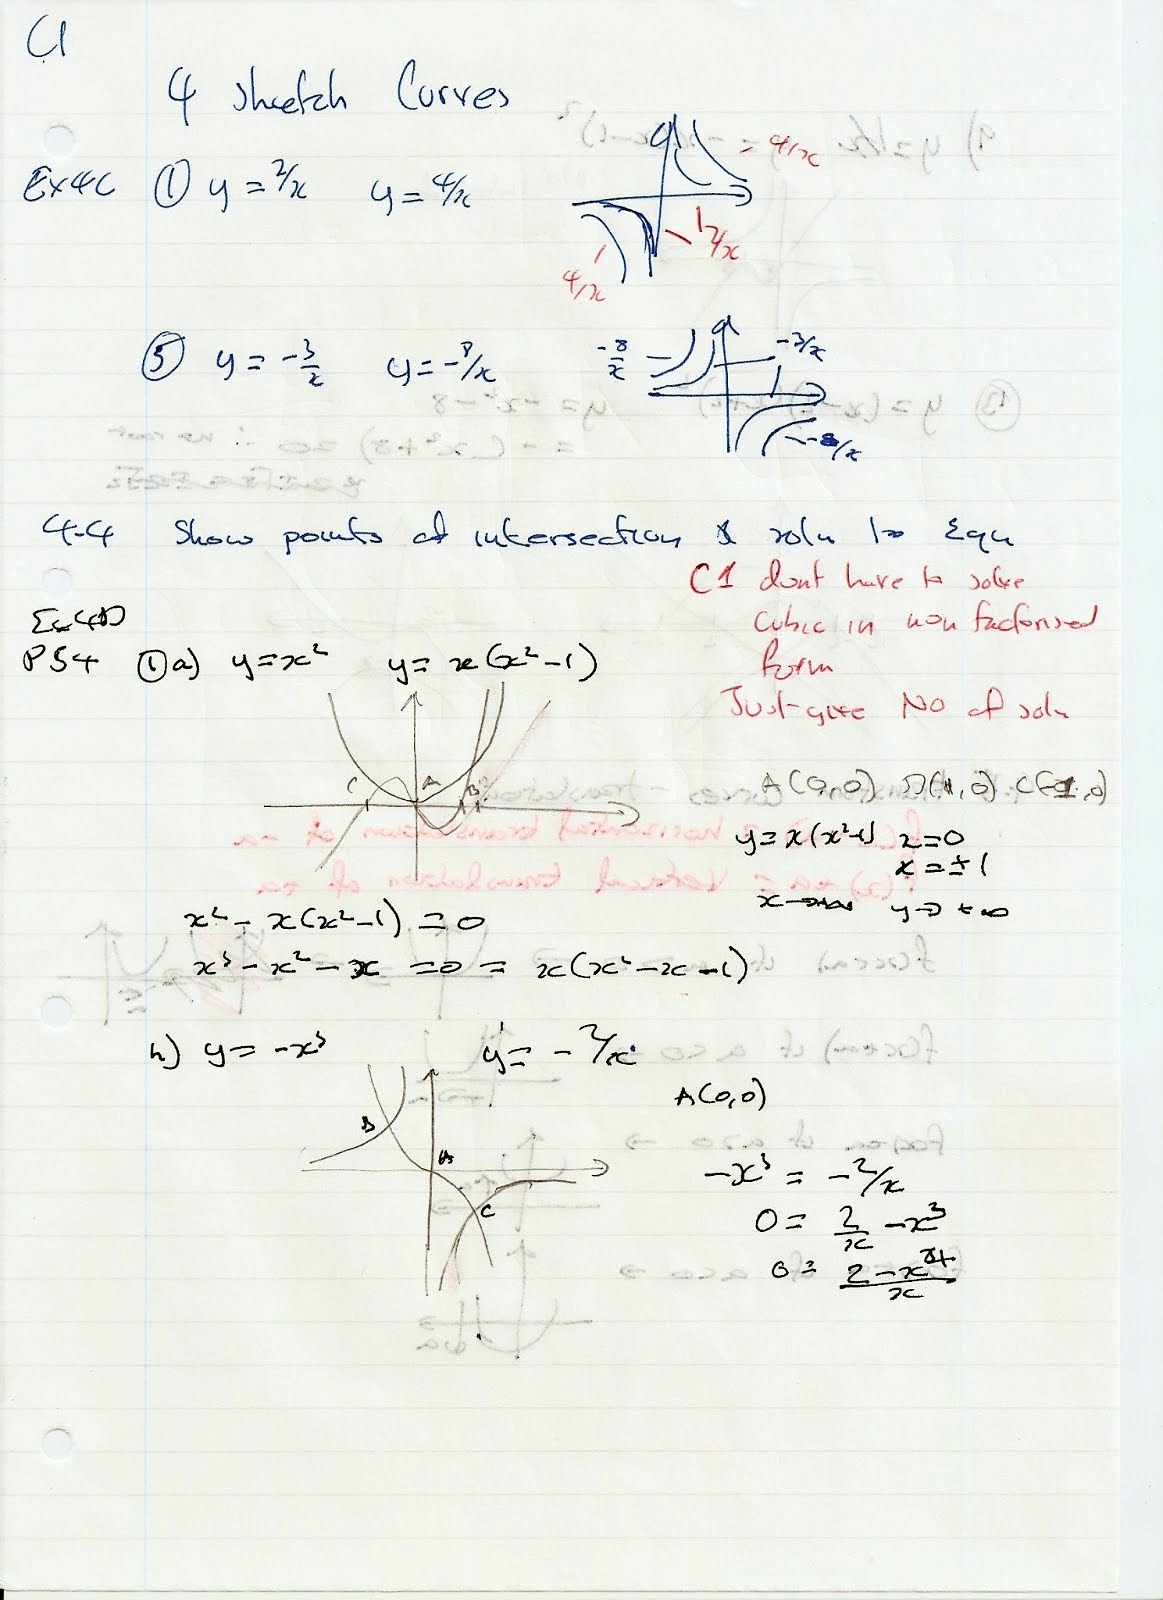 C1
4 Sketch Curves
Ex4C ① y = 2/x y = 4/x
4/x
2/x
4/x
⑤ y = -3/x y = -8/x
-8/x
-3/x
-8/x
4.4 Show points of intersection & soln to Equ
C1 dont have to solve
cubic in non factorised
form
Just give No of soln
Ex4D
P54 ① a) y = x² y = x(x²-1)
C A B
A(0,0) B(1,0) C(-1,0)
y = x(x²-1) x = 0
x = ±1
y → ±∞
x² - x(x²-1) = 0
x³ - x² - x = 0 = x(x² - x - 1)
h) y = -x³ y = -2/x
B A C
A(0,0)
-x³ = -2/x
0 = 2/x - x³
0 = 2-x⁴/x